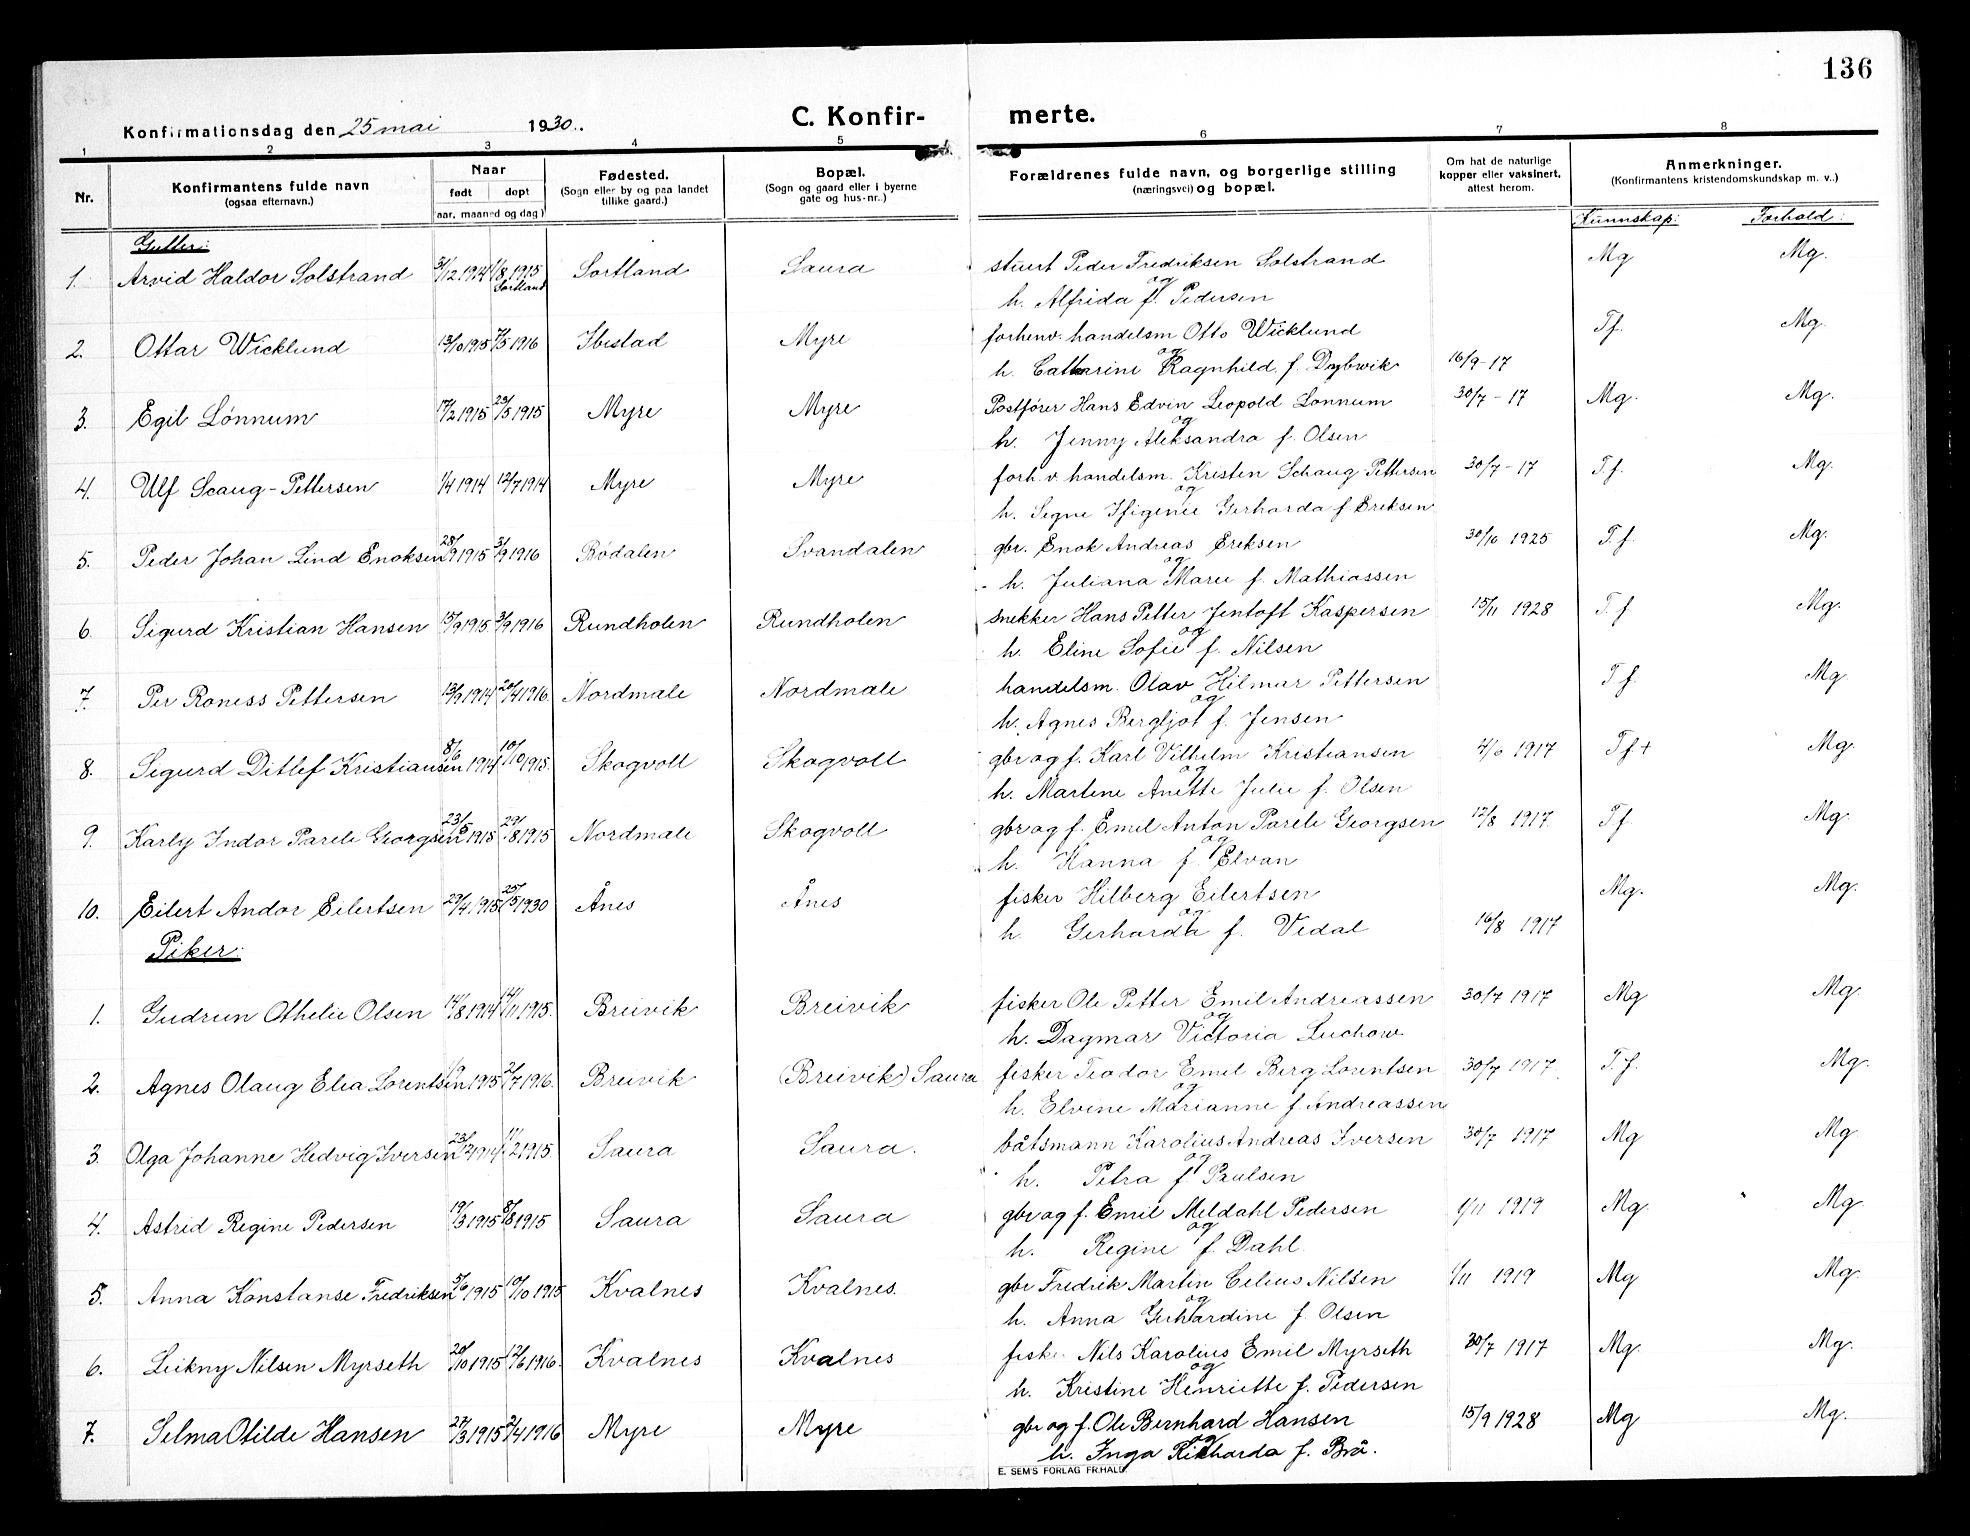 136
Konfirmationsdag den 25 mai 1930.
C. Konfir- merte.
1 2 3 4 5 6 7 8
Nr.
Konfirmantens fulde navn
(ogsaa efternavn.)
Naar
født døpt
(aar, maaned og dag)
Fødested.
(Sogn eller by og paa landet
tillike gaard.)
Bopæl.
(Sogn og gaard eller i byerne
gate og hus-nr.)
Forældrenes fulde navn, og borgerlige stilling
(næringsvei) og bopæl.
Om hat de naturlige
kopper eller vaksinert,
attest herom.
Anmerkninger.
(Konfirmantens kristendomskundskap m. v.)
Kunnskap: Forhold:
Gutter:
1. Arvid Haldor Solstrand 31/12 1914 1/8 1915 Sortland Saura stuert Peder Fredriksen Solstrand Mg Mg.
Sortland
og
h. Alfrida f. Pedersen
2. Ottar Wicklund 13/10 1915 7/5 1916 Ibestad Myre forhenv. handelsm Otto Wicklund Tf. Mg.
og
h. Catharine Ragnhild f. Dybwik 16/9-17
3. Egil Lønnum 17/2 1915 23/5 1915 Myre Myre Postfører Hans Edvin Leopold Lonnum 30/7-17 Mg. Mg.
og
h. Jenny Aleksandra f. Olsen
4. Ulf Scaug-Pettersen 1/4 1914 12/7 1914 Myre Myre forh. v. handelsm. Kristen Schaug-Pettersen 30/7-17 Tf. Mg.
og
h. Segne Ifigenie Gerharda f. Ereksen
5. Peder Johan Lind Enoksen 28/9 1915 3/9 1916 Bødalen Svandalen gbr. Enok Andreas Ereksen 30/10 1925 T.f. Mg.
og
h. Juliana Marie f. Mathiassen
6. Sigurd Kristian Hansen 15/9 1915 3/9 1916 Rundholen Rundholen snekker Hans Petter Jentoft Kaspersen 15/11 1928 T.f Mg.
og
h. Eline Sofie f. Nilsen
7. Per Roness Pettersen 13/9 1914 20/4 1916. Nordmale Nordmale handelsm. Olav Hilmar Pettersen T f. Mg.
og
h. Agnes Bergljot f. Jensen
8. Sigurd Ditlef Kristiansen 8/6 1914 10/10 1915. Skogvoll Skogvoll gbr og f. Karl Vilhelm Kristiansen 1917 Tf+ Mg.
og
h. Martine Anette Julie f. Olsen
9. Karly Indor Parele Georgsen 23/5 1915 29/8 1915 Nordmale Skogvoll gbr og f. Emil Anton Parele Georgsen 12/8 1917. Tf. Mg.
og
h. Hanna f. Elvan
10. Eilert Andor Eilertsen 29/4 1915 25/5 1930 Ånes Ånes fisker Hilberg Eilertsen Mg. Mg.
og
h. Gerharda f. Vedal 16/8 1917
Piker:
1. Gudrun Othelie Olsen 14/8 1914 14/11 1915. Breivik Breivik fisker Ole Petter Emil Andreassen 30/7 1917 Mg Mg.
og
h. Dagmar Victoria Luchow
2. Agnes Olaug Elea Lorentsen 1915 2/7 1916. Breivik (Breivik) Saura fisker Teodor Emil Berg Lorentsen 30/7 1917. T.f. Mg.
og
h. Elvine Marianne f. Andreassen
3. Olga Johanne Hedvig Iversen 23/12 1914 11/2 1915. Saura Saura. båtsmann Karolius Andreas Iversen 30/7 1917 Mg Mg.
og
h. Petra f Paulsen
4. Astrid Regine Pedersen 19/3 1915 8/8 1915 Saura Saura gbr og f. Emil Meldahl Pedersen 1/11 1919 Mg. Mg.
og
h. Regine f. Dahl.
5. Anna Konstanse Fredriksen 5/6 1915 10/10 1915 Kvalnes Kvalnes. gbr Fredrik Martin Celius Nilsen 1/11 1919 Mg Mg.
og
h. Anna Gerhardine f. Olsen
6. Leikny Nilsen Myrseth 20/10 1915 12/6 1916. Kvalnes Kvalnes fisker Nils Karolius Emil Myrseth 30/7 1917 Mg. Mg.
og
h. Kristine Henriette f. Pedersen
7. Selma Otilde Hansen 27/3 1915 2/4 1916 Myre Myre gbr og f. Ole Bernhard Hansen 15/9 1928 Mg Mg.
og
h. Inga Rikharda f. Brå.
E. SEM'S FORLAG FR.HALD.